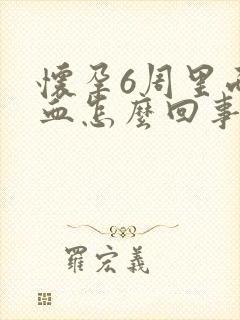 懷孕6周里
血怎麼回事
羅宏義